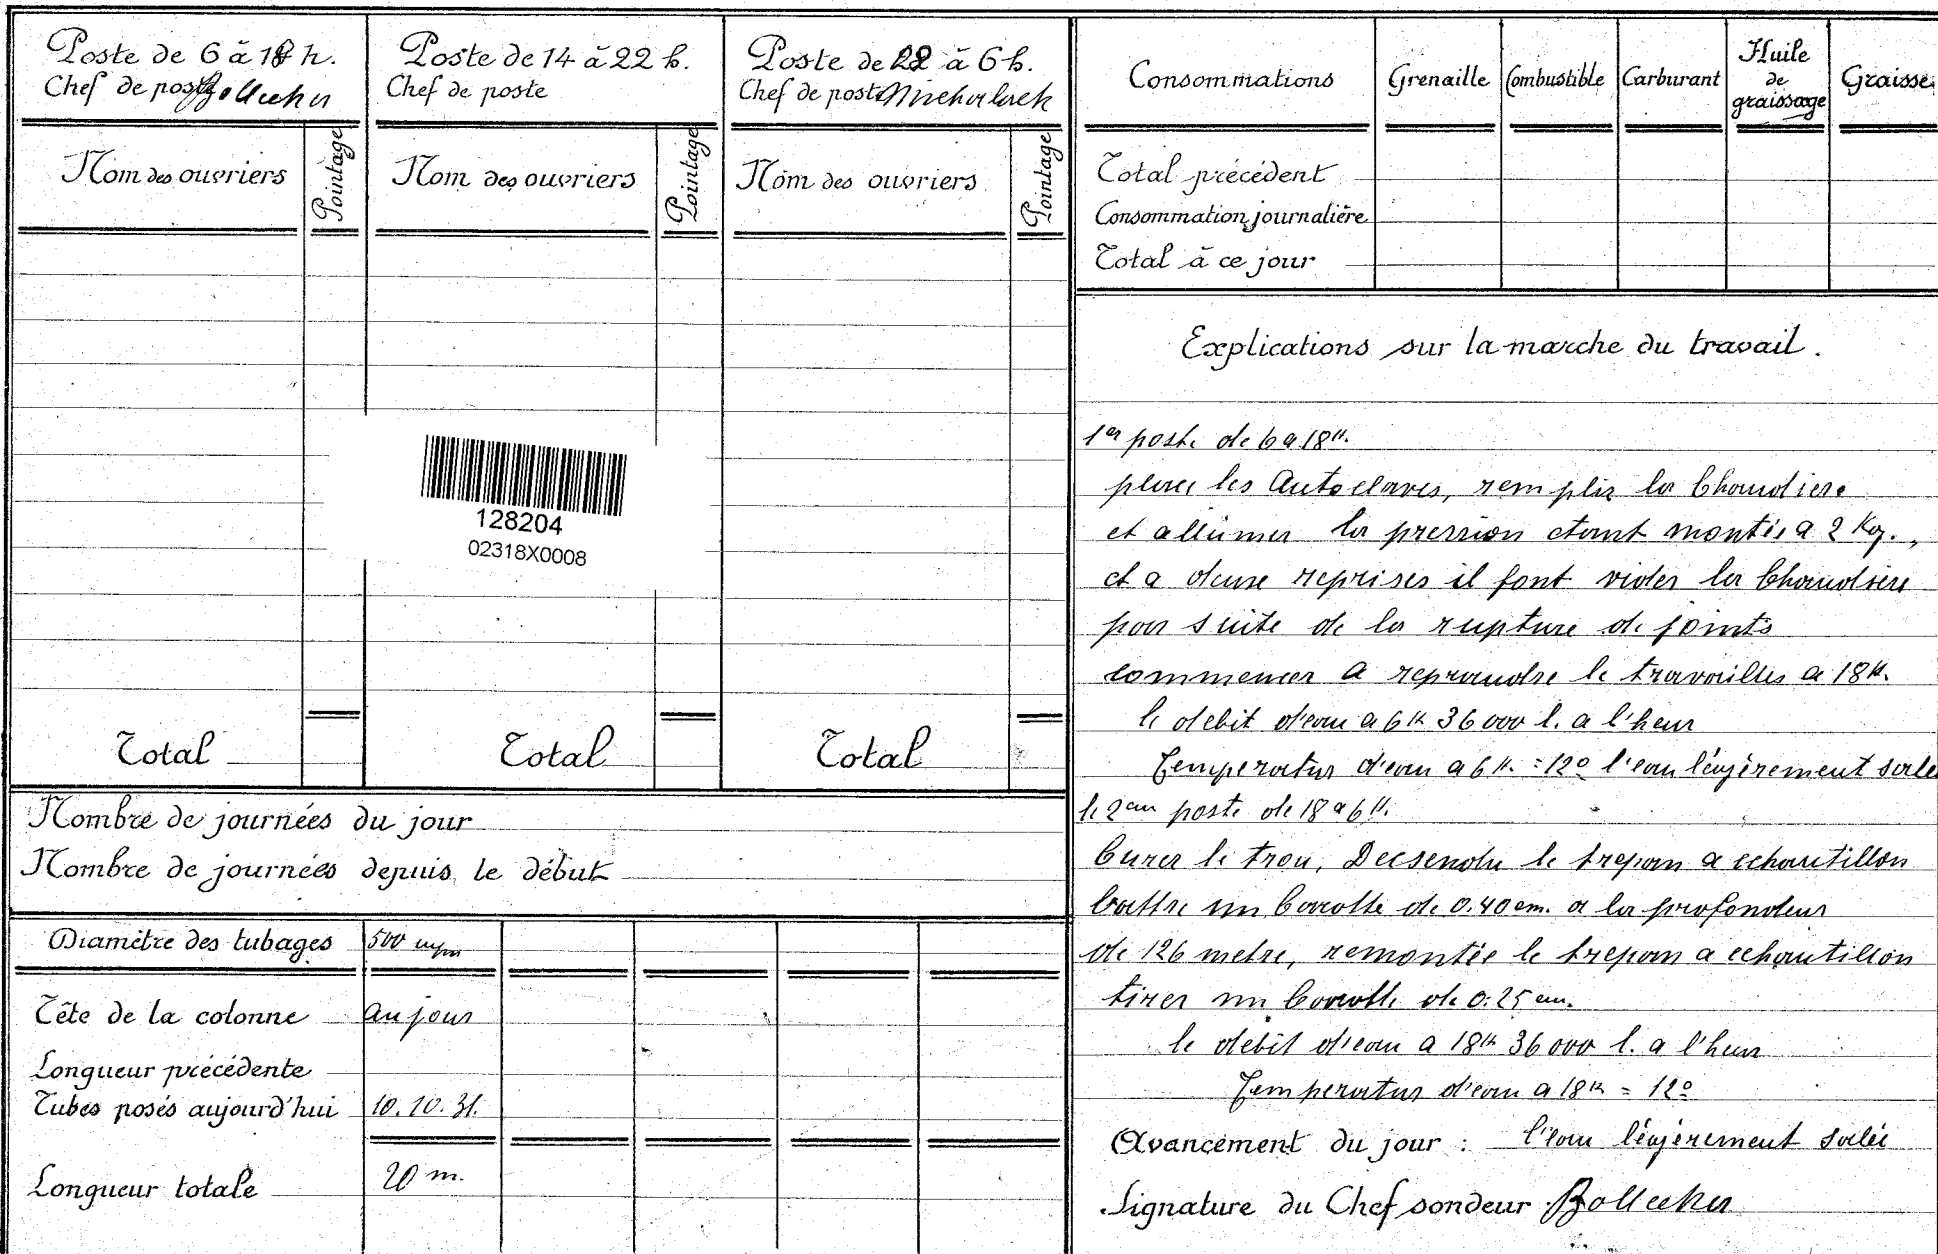 Poste de 6 à 18 h.
Chef de poste Bollecker
Nom des ouvriers
Pointage
Total
Poste de 14 à 22 h.
Chef de poste
Nom des ouvriers
Pointage
Total
Poste de à 6 h.
Chef de poste
Nom des ouvriers
Pointage
Total
128204
02318X0008
Nombre de journées du jour
Nombre de journées depuis le début
Diamètre des tubages 500 m/m
Tête de la colonne au jour
Longueur précédente
Tubes posés aujourd'hui 10.10.31.
Longueur totale 20 m.
Consommations Grenaille Combustible Carburant Huile de graissage Graisse
Total précédent
Consommation journalière
Total à ce jour
Explications sur la marche du travail.
1er poste de 6 a 18h.
placer les Autoclaves, remplir la Chaudiere
et allumer la pression etant montée a 2 Kg.,
et a deuse reprises il font vider la Chaudsiere
par suite de la rupture de joints
commencer a reprandre le travailles a 18h.
le debit d'eau a 6h 36000 l. a l'heur
Temperatur d'eau a 6h. = 12° l'eau léugèrement salé
le 2em poste de 18 a 6h.
Curer le trou, Decsendu le trepan a echantillon
battre un Carotte de 0.40 cm. a la profondeur
de 126 metre, remontée le trepan a echantillon
tirer un Carotte de 0.25 cm.
le debit d'eau a 18h 36000 l. a l'heur
Temperatur d'eau a 18h = 12°
Avancement du jour : l'eau léugèrement salée
Signature du Chef sondeur Bollecker